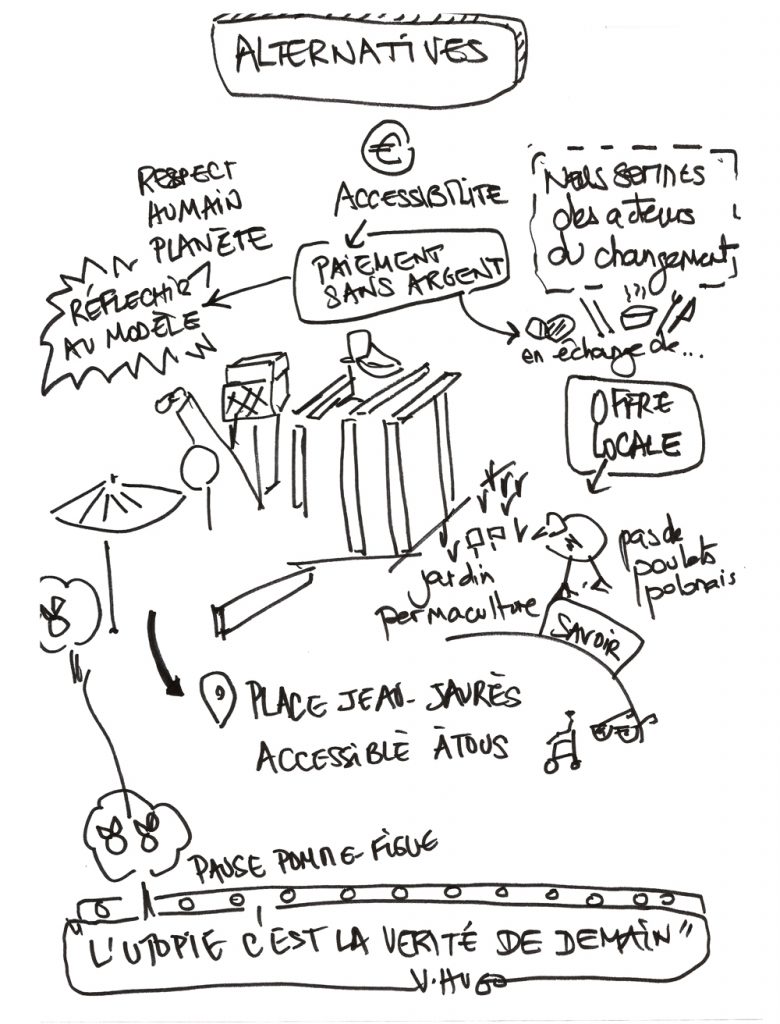 ALTERNATIVES
€
ACCESSIBILITE
RESPECT
HUMAIN
PLANÈTE
PAIEMENT
SANS ARGENT
RÉFLECHIR
AU MODÈLE
NOUS SOMMES
des acteurs
du changement
en échange de...
OFFRE
LOCALE
pas de
poulets
polonais
jardin
permaculture
SAVOIR
PLACE JEAN-JAURÈS
ACCESSIBLE À TOUS
PAUSE POMME-FIGUE
"L'UTOPIE C'EST LA VERITÉ DE DEMAIN"
V.HUGO